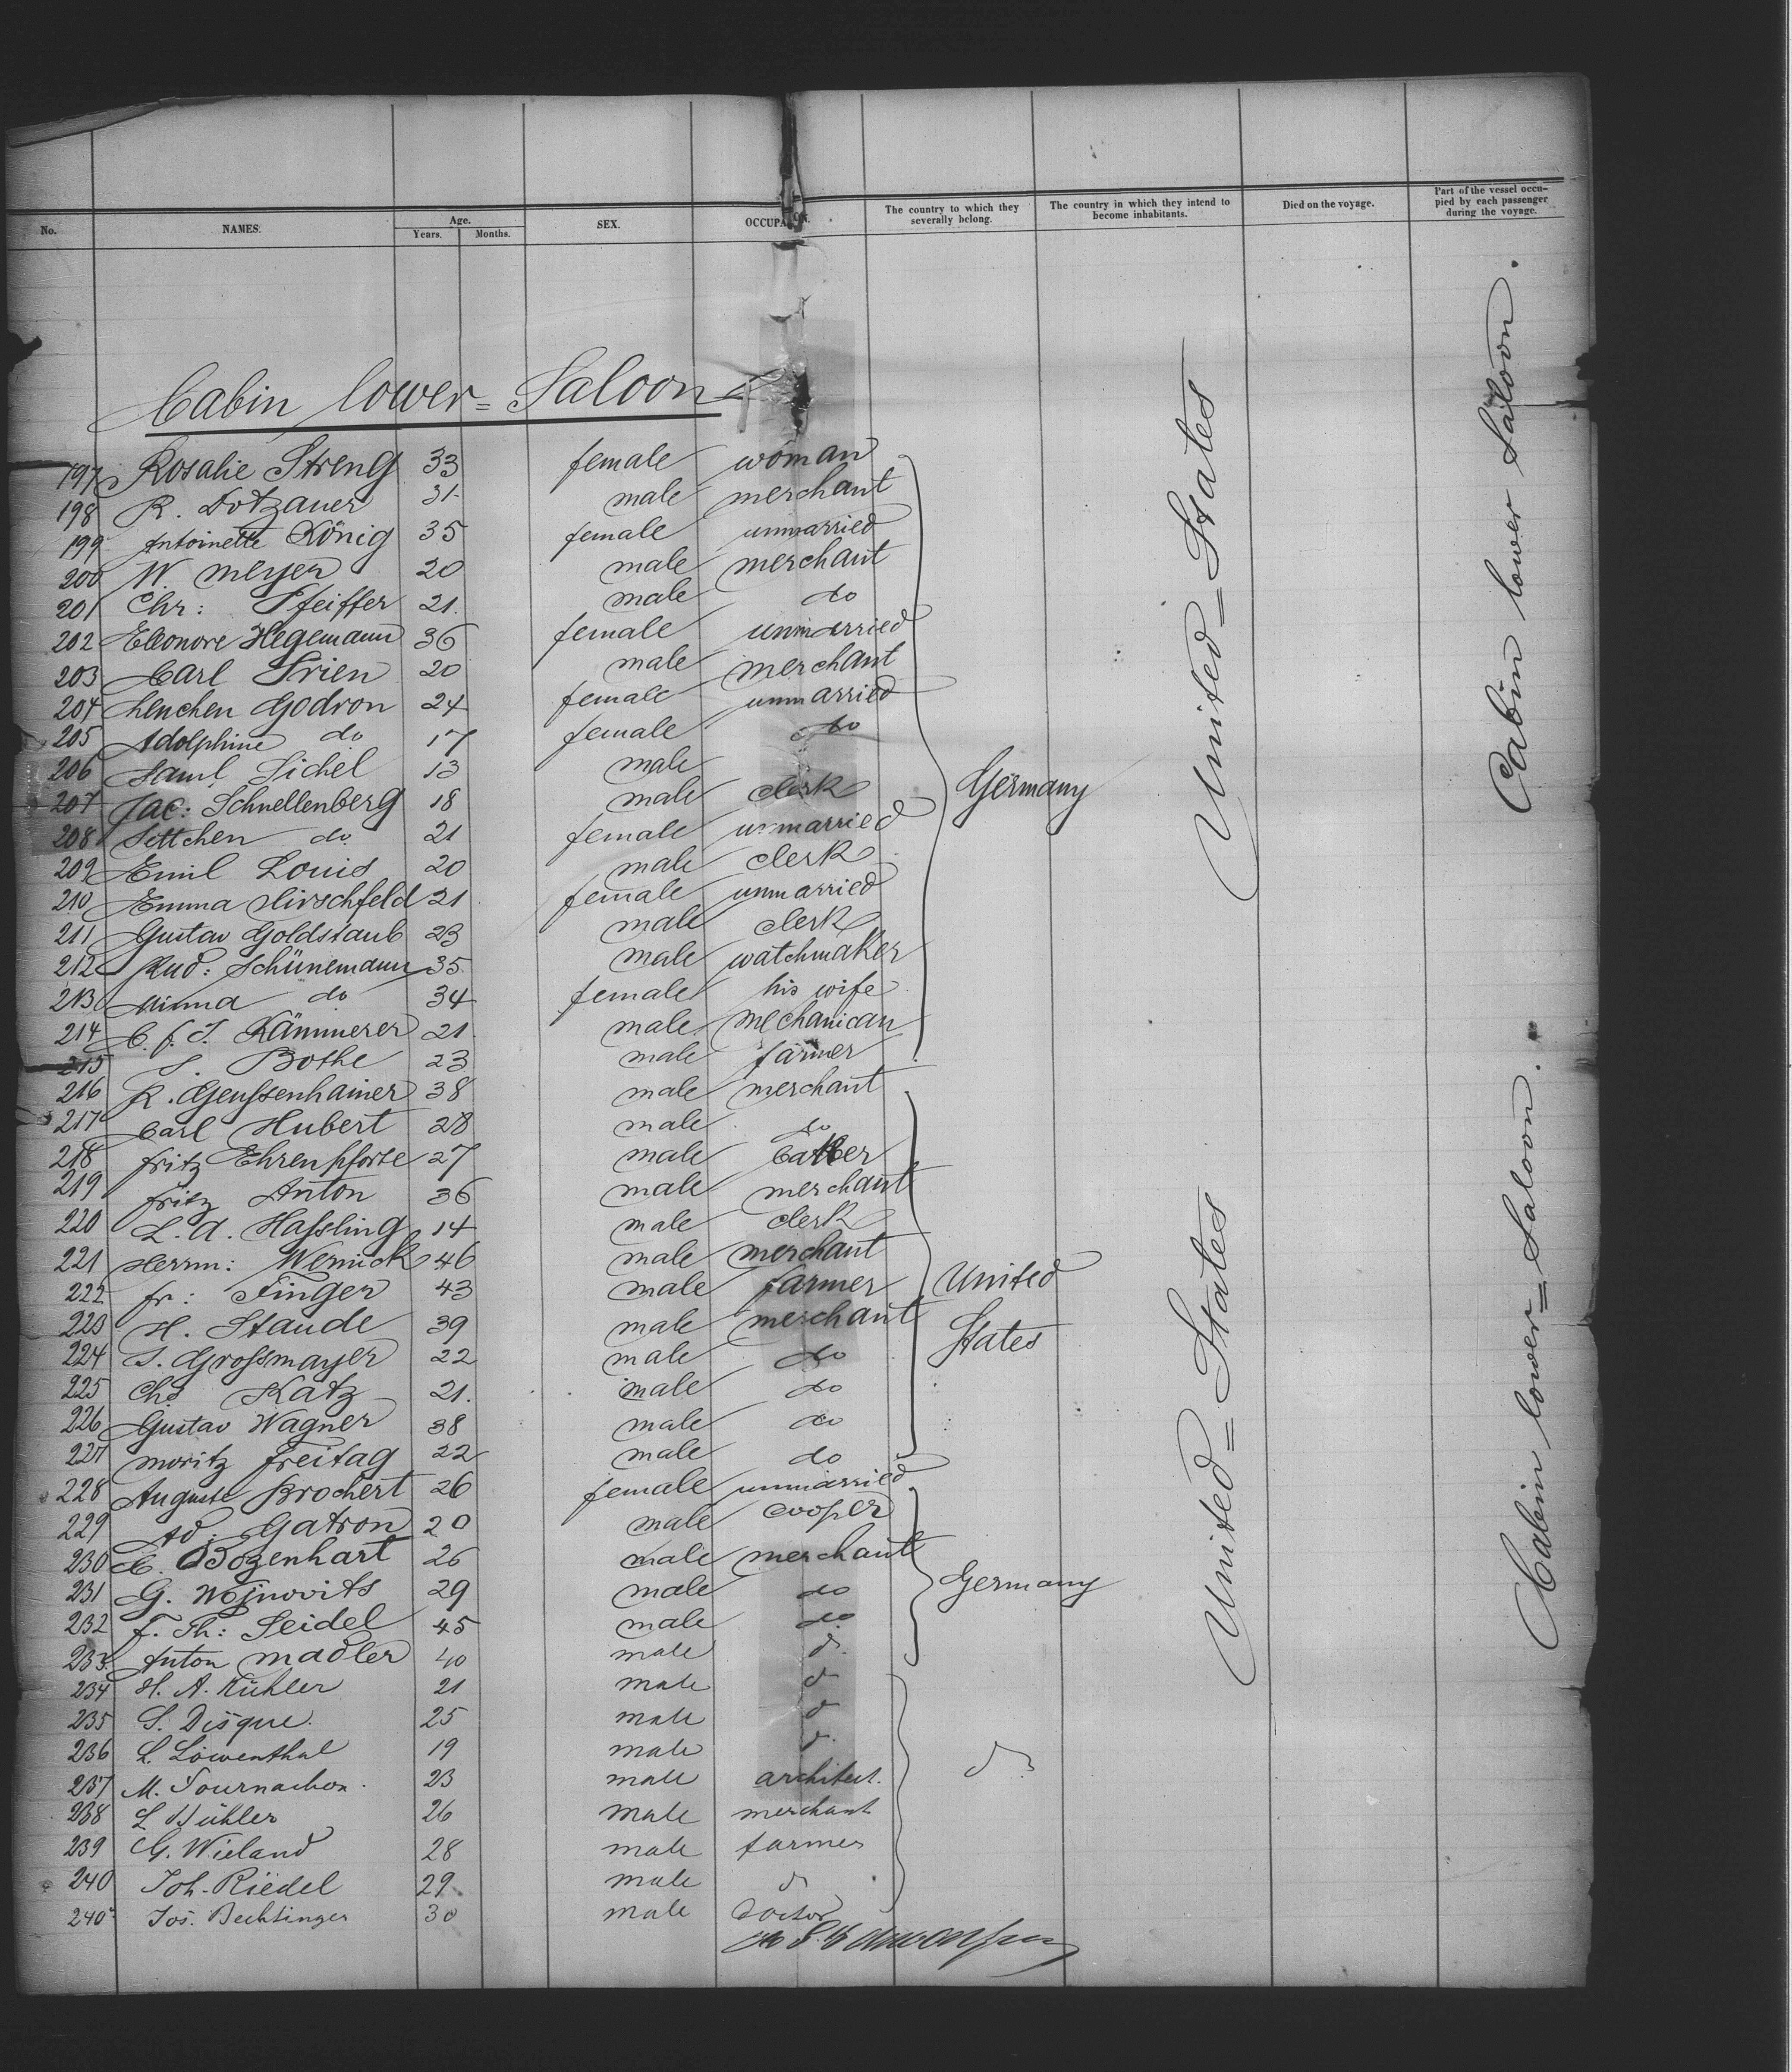 No. NAMES. Age. Years. Months. SEX. OCCUPATION. The country to which they severally belong. The country in which they intend to become inhabitants. Died on the voyage. Part of the vessel occupied by each passenger during the voyage.
Cabin lower = Saloon
197 Rosalie Streng 33 female woman
198 R. Dotzauer 31 male merchant
199 Antoinette König 35 female unmarried
200 W. Meyer 20 male merchant
201 Chr: Pfeiffer 21. male do
202 Eleonore Hegemann 36 female unmarried
203 Carl Prien 20 male merchant
204 Lenchen Godron 24 female unmarried
205 Adolphine do 17 female do
206 Saml. Sichel 13 male
207 Jac: Schnellenberg 18 male clerk
208 Settchen do 21 female unmarried
209 Emil Louis 20 male clerk
210 Emma Hirschfeld 21 female unmarried
211 Gustav Goldstaub 23 male clerk
212 Rud: Schünemann 35 male watchmaker
213 Minna do 34 female his wife
214 C. f. J. Kämmerer 21 male mechanican
215 Bothe 23 male farmer
Germany
216 R. Geussenhainer 38 male merchant
217 Carl Hubert 28 male do
218 Fritz Ehrenpforte 27 male
219 Fritz Anton 36 male merchant
220 L. A. Hassling 14 male clerk
221 Herrm: Wernick 46 male merchant
222 fr: Finger 43 male farmer
223 H. Staude 39 male merchant
224 S. Grossmayer 22 male do
225 Chs Katz 21. male do
226 Gustav Wagner 38 male do
227 Moritz Freitag 22 male do
United States
228 Auguste Brochert 26 female unmarried
229 Ad: Gatron 20 male cooper
230 C. Bozenhart 26 male merchant
231 G. Wojnovits 29 male do
232 F. Th: Seidel 45 male do
233. Anton Madler 40 male do
Germany
234 H. A. Kühler 21 male do
235 S. Disque. 25 male do
236 L. Löwenthal 19 male do
237 M. Tournachon. 23 male architect.
238 L Bühler 26 male merchant
239 G. Wieland 28 male farmer
240 Joh. Riedel 29. male do
240a Jos. Bechtinger 30 male Doctor
do
United = States
United = States
Cabin lower Saloon.
Cabin lower = Saloon.